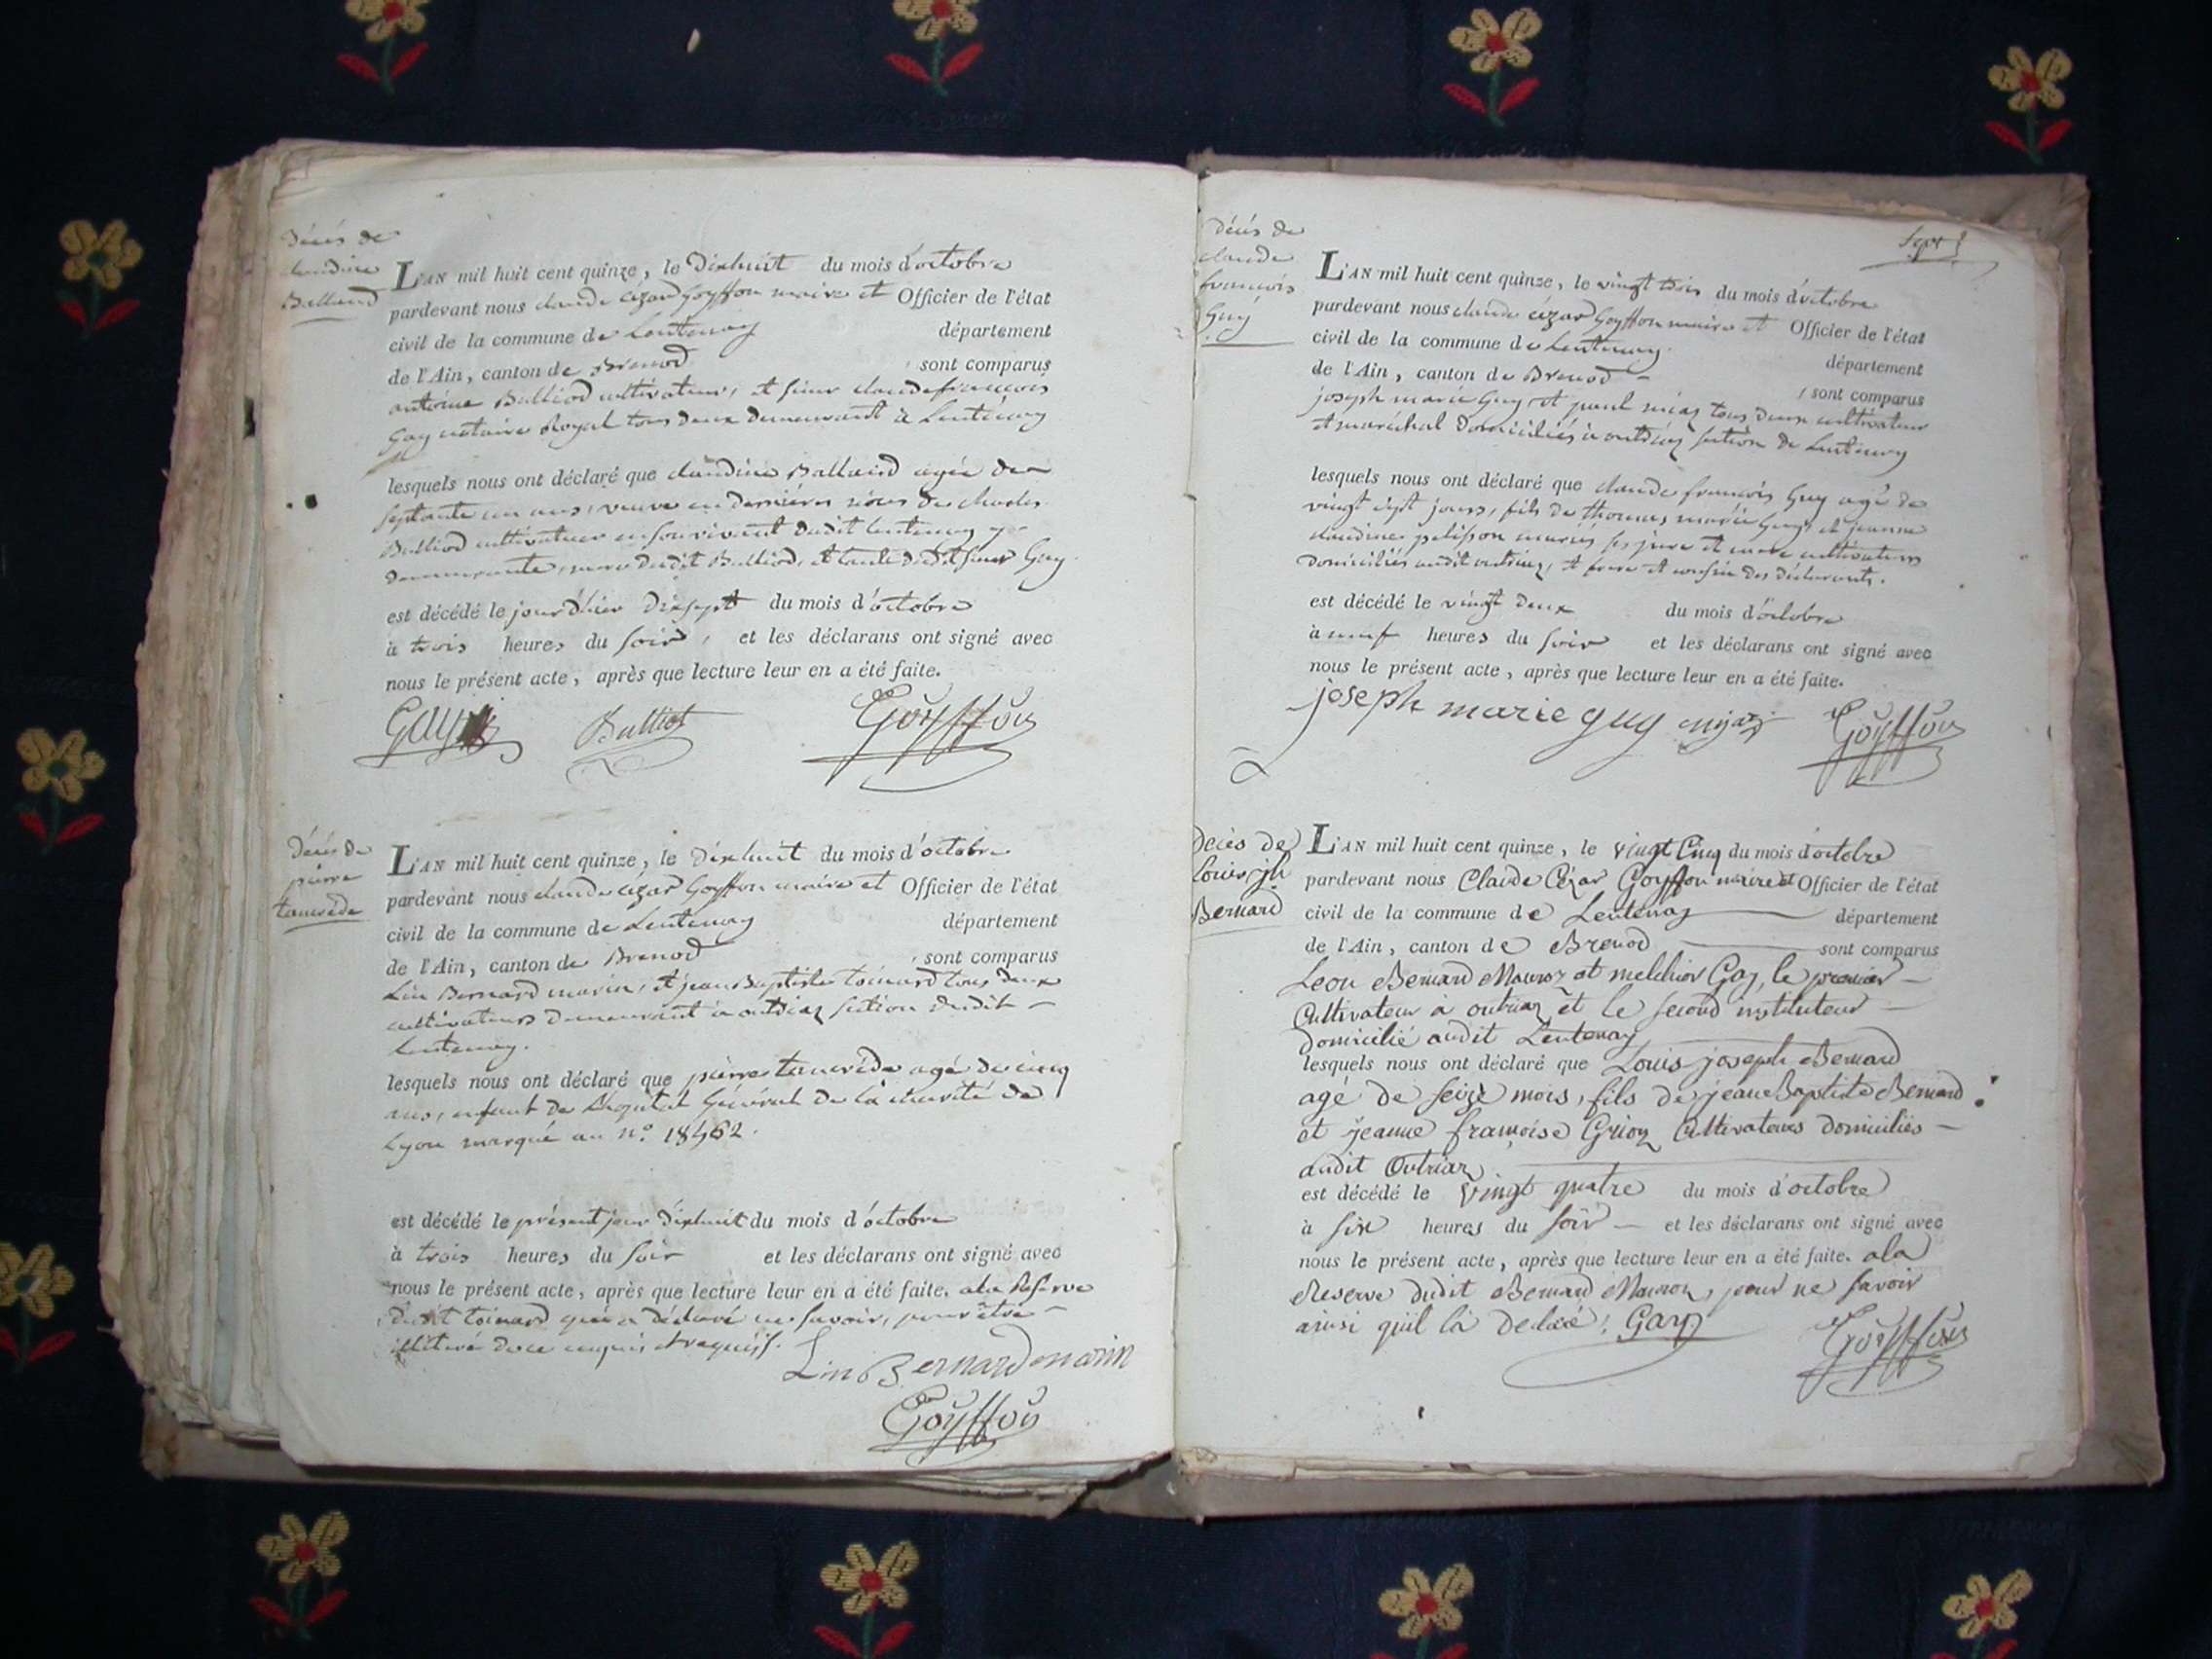 Décés de
claudine
Balland
L'AN mil huit cent quinze, le dixhuit du mois d'octobre
pardevant nous claude cézar Goyffon maire et Officier de l'état
civil de la commune de Lentenay département
de l'Ain, canton de Brenod, sont comparus
antoine Balliod cultivateur, et sieur claude francois
Gay notaire Royal tous deux demeurant à Lentenay
lesquels nous ont déclaré que claudine Balland agée de
septante un ans, veuve en dernières nôces de charles
Balliod cultivateur en son vivant dudit Lentenay y
demeurante, mere dudit Balliod, et tante dudit sieur Gay.
est décédé le jour d'hier dixsept du mois d'octobre
à trois heures du soir, et les déclarans ont signé avec
nous le présent acte, après que lecture leur en a été faite.
Gay Balliod Goyffon
Décés de
pierre
tancrède
L'AN mil huit cent quinze, le dixhuit du mois d'octobre
pardevant nous claude cézar Goyffon maire et Officier de l'état
civil de la commune de Lentenay département
de l'Ain, canton de Brenod, sont comparus
Lin Bernard marin, et jean Baptiste toinard tous deux
cultivateurs demeurant à outriaz section dudit
Lentenay.
lesquels nous ont déclaré que pierre tancrède agé de cinq
ans, enfant de l'hopital Général de la charité de
Lyon marqué au n.º 18462.
est décédé le présent jour dixhuit du mois d'octobre
à trois heures du soir et les déclarans ont signé avec
nous le présent acte, après que lecture leur en a été faite. a la Réserve
dudit toinard qui a déclaré ne savoir, pour être
illitéré de ce enquis et requis.
Lin Bernard marin
Goyffon
Sept
Décés de
claude
francois
Guy
L'AN mil huit cent quinze, le vingt trois du mois d'octobre
pardevant nous claude cézar Goyffon maire et Officier de l'état
civil de la commune de Lentenay département
de l'Ain, canton de Brenod, sont comparus
joseph marie Guy, et paul niéaz tous deux cultivateur
et maréchal domiciliés à outriaz section de Lentenay
lesquels nous ont déclaré que claude francois Guy agé de
vingt sept jours, fils de thomas marie Guy, et jeanne
claudine pelisson mariés ses pere et mere cultivateurs
domiciliés audit outriaz, et frere et cousin des déclarants.
est décédé le vingt deux du mois d'octobre
à neuf heures du soir et les déclarans ont signé avec
nous le présent acte, après que lecture leur en a été faite.
joseph marie guy Goyffon
Deces de
Louis jh
Bernard
L'AN mil huit cent quinze, le vingt Cinq du mois d'octobre
pardevant nous Claude Cézar Goyffon maire et Officier de l'état
civil de la commune de Lentenay département
de l'Ain, canton de Brenod sont comparus
Leon Bernard Mauroz et melchior Gay, le premier
Cultivateur à outriaz et le second instituteur
domicilié audit Lentenay
lesquels nous ont déclaré que Louis joseph Bernard
agé de seize mois, fils de jean Baptiste Bernard
et jeanne françoise Grioz Cultivateurs domiciliés
audit Outriaz
est décédé le vingt quatre du mois d'octobre
à six heures du soir et les déclarans ont signé avec
nous le présent acte, après que lecture leur en a été faite. a la
Reserve dudit Bernard Mauroz, pour ne savoir
ainsi qu'il la declaré. Gay Goyffon